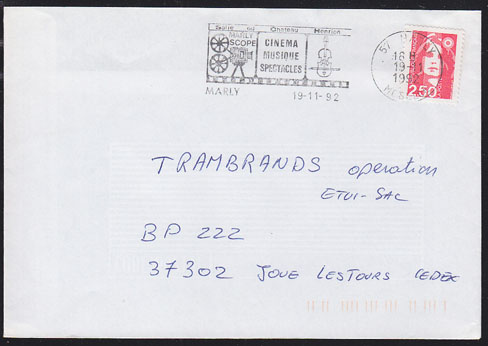 Salle du Chateau Henrion
MARLY SCOPE
CINEMA
MUSIQUE
SPECTACLES
MARLY 19-11-92
57
16 H
19-11
1992
2,50
TRAMBRANDS operation
ETUI-SAC
BP 222
37302 JOUE LESTOURS CEDEX